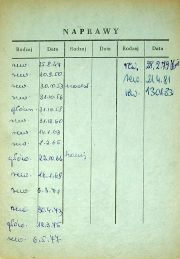 NAPRAWY
Rodzaj Data Rodzaj Data Rodzaj Data
rew. 25.2.49 rew. 28.2.79
rew. 20.3.50 rew. 21.4.81
rew. 30.10.53 rew. 130183
rew. 31.10.56
główn. 31.10.58
rew. 31.12.60
rew. 14.1.63
rew. 2.2.65
główn. 22.10.66
rew. 14.1.69
rew. 6.3.71
rew. 30.4.73
główn. 18.3.75
rew. 6.5.77